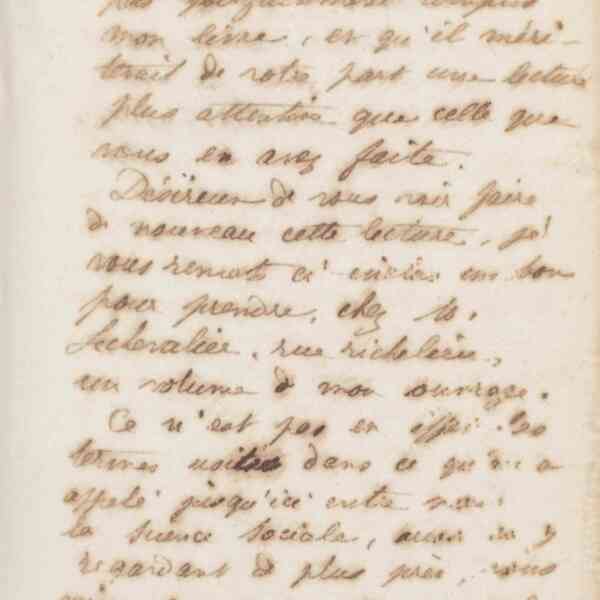 pas jusqu'ici compris
mon livre, et qu'il méri-
terait de votre part une lecture
plus attentive que celle que
vous en avez faite.
Désireux de vous voir faire
de nouveau cette lecture, je
vous remets ci-inclus un bon
pour prendre, chez M.
Lechevalier, rue richelieu,
un volume de mon ouvrage.
Ce n'est pas en effet les
termes usités dans ce qu'on a
appelé jusqu'ici entre nous
la science sociale, aussi en y
regardant de plus près, vous